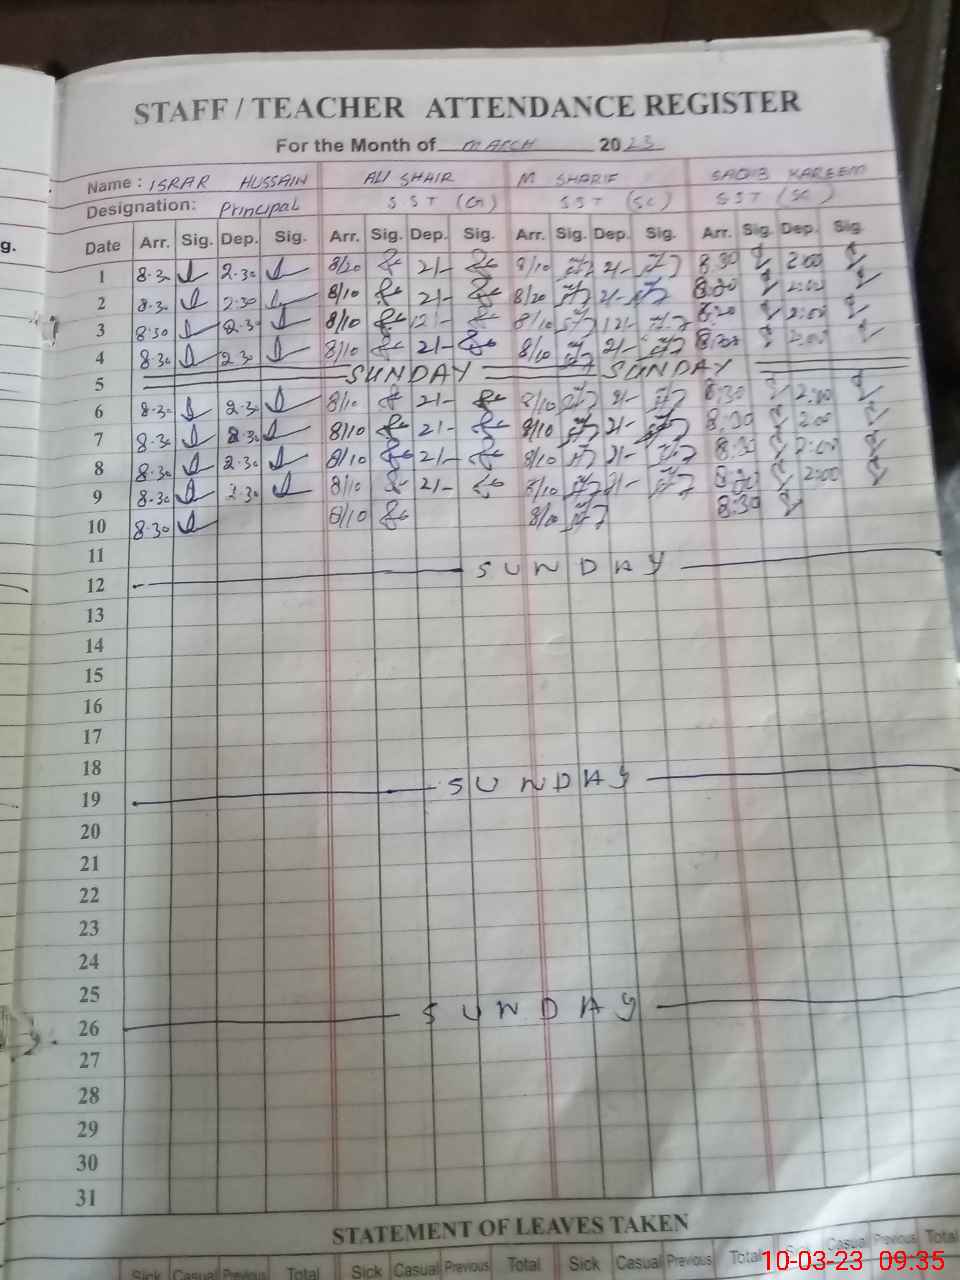 STAFF / TEACHER ATTENDANCE REGISTER
For the Month of MARCH 2023
Name : ISRAR HUSSAIN ALI SHAIR M SHARIF SAQIB KAREEM
Designation: Principal SST (G) SST (SC) SST (SC)
g.
Date Arr. Sig. Dep. Sig. Arr. Sig. Dep. Sig. Arr. Sig. Dep. Sig. Arr. Sig. Dep. Sig.
1 8.30 2.30 8/20 2/- 8/10 2/- 8:30 2:00
2 8.30 2.30 8/10 2/- 8/20 2/- 8:30 2:00
3 8:30 2.30 8/10 12/- 8/10 12/- 8:30 2:00
4 8.30 2.30 8/10 2/- 8/10 2/- 8:30 2:00
5 SUNDAY SUNDAY
6 8.30 2.30 8/10 2/- 8/10 2/- 8:30 2:00
7 8.30 2.30 8/10 2/- 8/10 2/- 8:30 2:00
8 8.30 2.30 8/10 2/- 8/10 2/- 8:30 2:00
9 8.30 2.30 8/10 2/- 8/10 2/- 8:30 2:00
10 8.30 8/10 8/10 8:30
11
12 SUNDAY
13
14
15
16
17
18
19 SUNDAY
20
21
22
23
24
25
26 SUNDAY
27
28
29
30
31
STATEMENT OF LEAVES TAKEN
Sick Casual Previous Total Sick Casual Previous Total Sick Casual Previous Total Sick Casual Previous Total
10-03-23 09:35